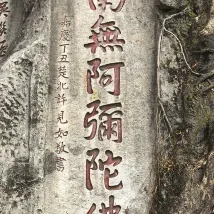 南無阿彌陀佛
丁丑楚北許見如敬書